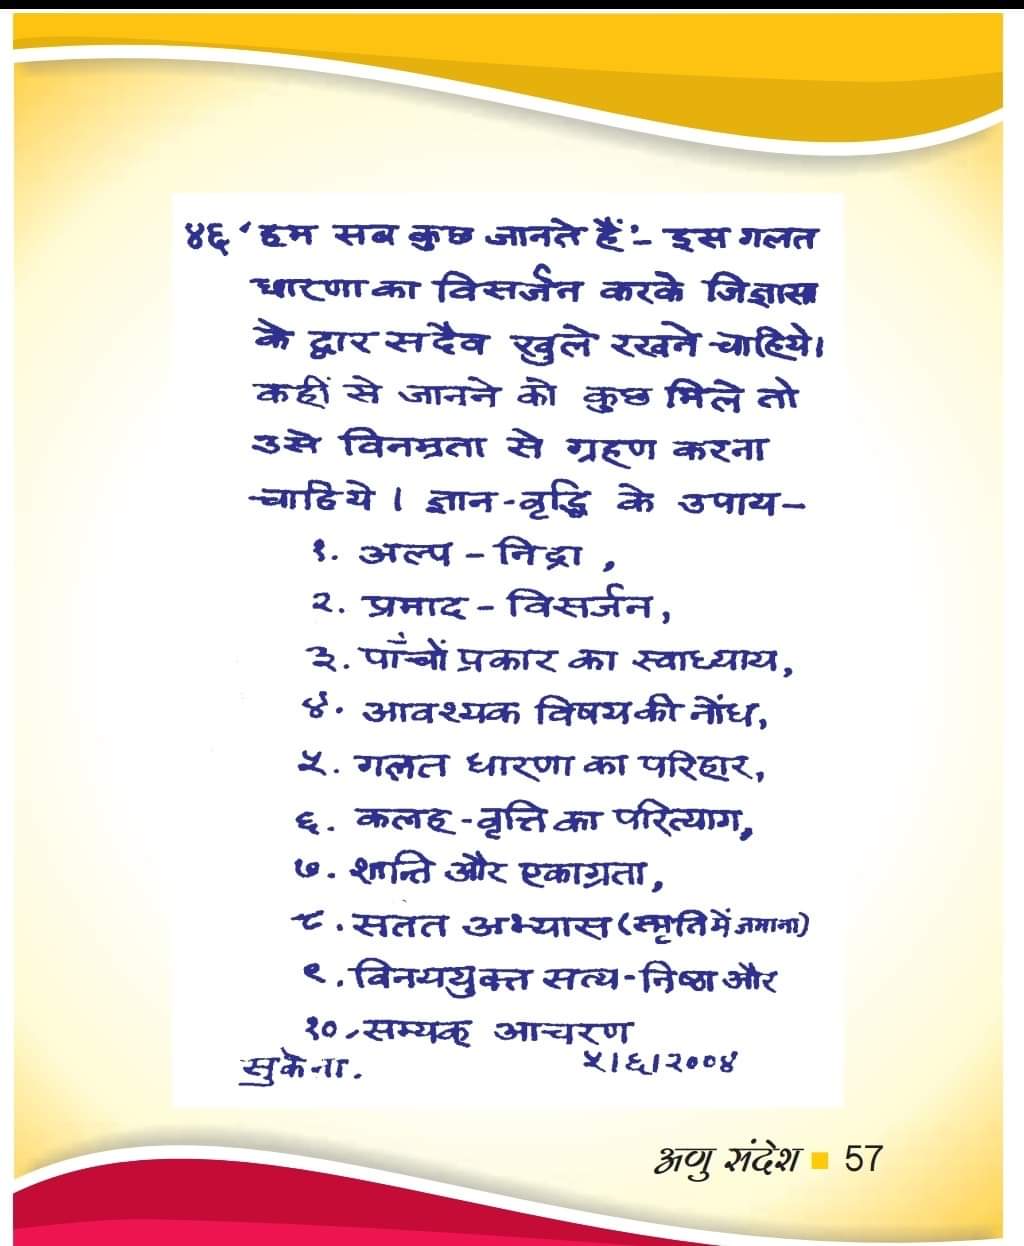 ४६ 'हम सब कुछ जानते हैं'- इस गलत
धारणा का विसर्जन करके जिज्ञासा
के द्वार सदैव खुले रखने चाहिये।
कहीं से जानने को कुछ मिले तो
उसे विनम्रता से ग्रहण करना
चाहिये। ज्ञान-वृद्धि के उपाय-
१. अल्प - निद्रा,
२. प्रमाद - विसर्जन,
३. पाँचों प्रकार का स्वाध्याय,
४. आवश्यक विषय की नोंध,
५. गलत धारणा का परिहार,
६. कलह-वृत्ति का परित्याग,
७. शान्ति और एकाग्रता,
८. सतत अभ्यास (स्मृति में जमाना)
९. विनययुक्त सत्य-निष्ठा और
१०. सम्यक् आचरण
सुकेना. ५।६।२००४
अणु संदेश 57